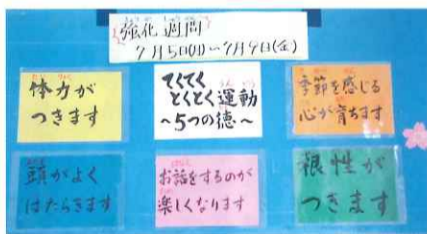 強化週間
7月5日(月)〜7月9日(金)
体力が
つきます
てくてく
とくとく運動
〜5つの徳〜
季節を感じる
心が育ちます
頭がよく
はたらきます
お話をするのが
楽しくなります
根性が
つきます